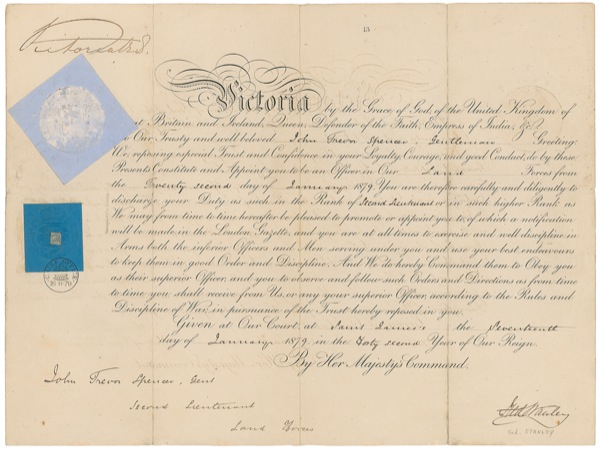 Victoria R &
13
Victoria by the Grace of God, of the United Kingdom of
Great Britain and Ireland, Queen, Defender of the Faith, Empress of India, &c.
To Our Trusty and well beloved John Trevor Spencer, Gentleman Greeting:
We, reposing especial Trust and Confidence in your Loyalty, Courage, and good Conduct, do by these
Presents Constitute and Appoint you to be an Officer in Our Land Forces from
the Twenty second day of January 1879. You are therefore carefully and diligently to
discharge your Duty as such in the Rank of Second Lieutenant or in such higher Rank as
We may from time to time hereafter be pleased to promote or appoint you to, of which a notification
will be made in the London Gazette, and you are at all times to exercise and well discipline in
Arms both the inferior Officers and Men serving under you and use your best endeavours
to keep them in good Order and Discipline. And We do hereby Command them to Obey you
as their superior Officer, and you to observe and follow such Orders and Directions as from time
to time you shall receive from Us, or any your superior Officer, according to the Rules and
Discipline of War, in pursuance of the Trust hereby reposed in you.
Given at Our Court, at Saint James's the Seventeenth
day of January 1879 in the Forty second Year of Our Reign.
By Her Majesty's Command.
John Trevor Spencer, Gent
Second Lieutenant
Land Forces
Fred Stanley
STANLEY